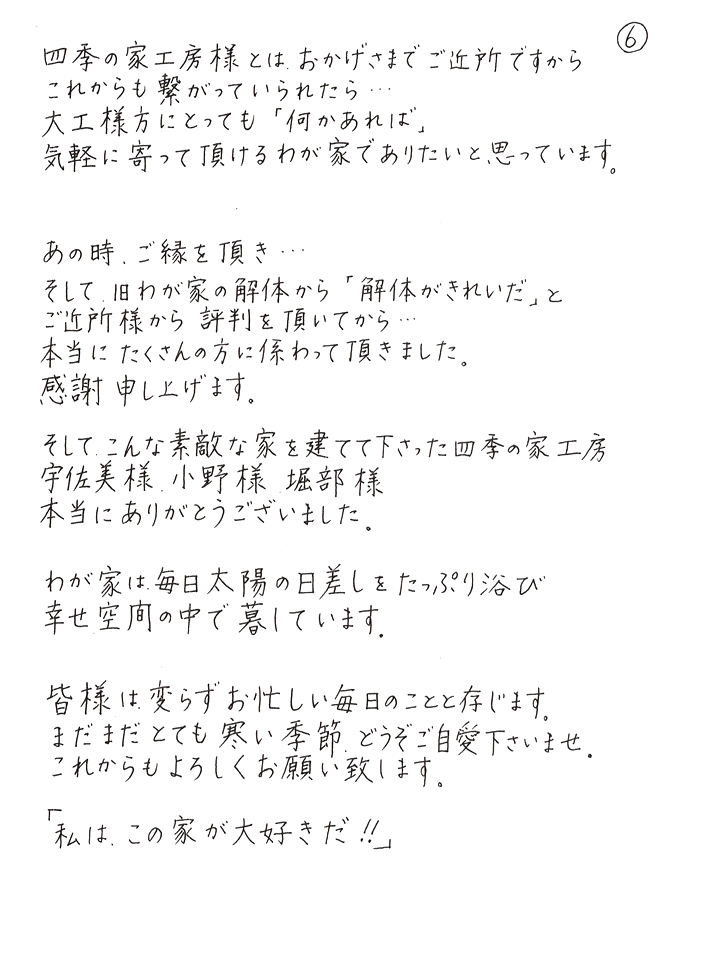 ⑥
四季の家工房様とは、おかげさまでご近所ですから
これからも繋がっていられたら…
大工様方にとっても「何かあれば」
気軽に寄って頂けるわが家でありたいと、思っています。
あの時、ご縁を頂き…
そして、旧わが家の解体から「解体がきれいだ」と
ご近所様から 評判を頂いてから…
本当に たくさんの方に係わって頂きました。
感謝 申し上げます。
そして、こんな素敵な家を建てて下さった四季の家工房
宇佐美様、小野様、堀部様
本当にありがとうございました。
わが家は、毎日太陽の日差しをたっぷり浴び
幸せ空間の中で暮しています。
皆様は、変らずお忙しい毎日のことと存じます。
まだまだとても寒い季節、どうぞご自愛下さいませ。
これからもよろしくお願い致します。
「私は、この家が大好きだ!!」